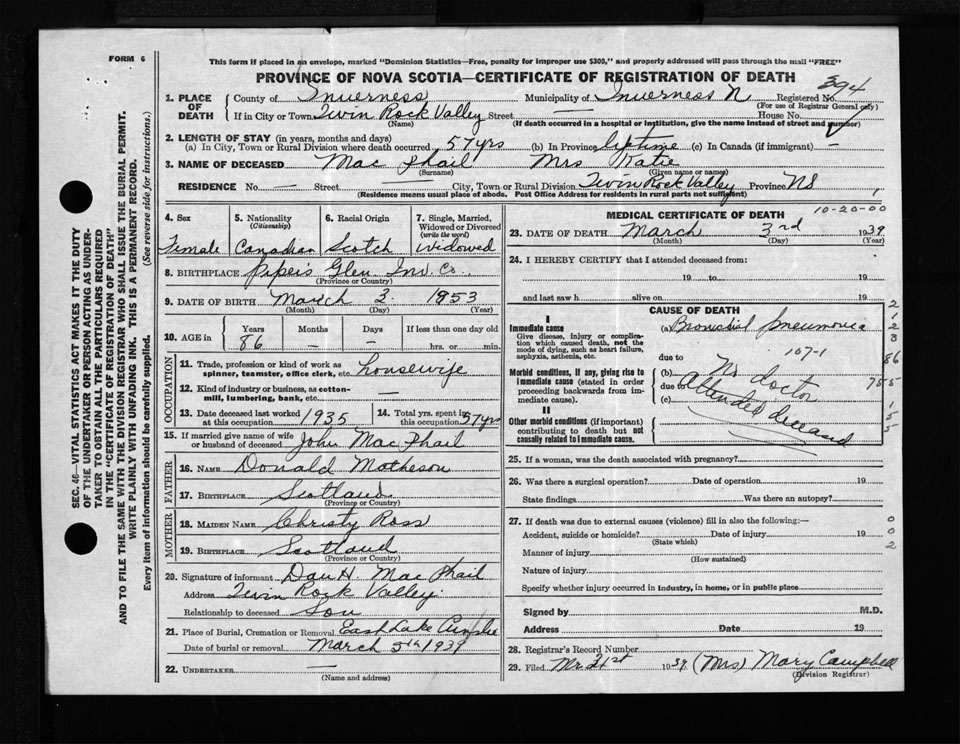 FORM 6
This form if placed in an envelope, marked "Dominion Statistics—Free, penalty for improper use $300," and properly addressed will pass through the mail "FREE"
PROVINCE OF NOVA SCOTIA—CERTIFICATE OF REGISTRATION OF DEATH
394
1. PLACE OF DEATH
County of Inverness Municipality of Inverness N Registered No.
(For use of Registrar General only)
If in City or Town Twin Rock Valley Street — House No.
(Name) (If death occurred in a hospital or institution, give the name instead of street and number)
2. LENGTH OF STAY (in years, months and days)
(a) In City, Town or Rural Division where death occurred 57 yrs (b) In Province liftime (c) In Canada (if immigrant) —
3. NAME OF DECEASED Mac Phail Mrs Katie
(Surname) (Given name or names)
RESIDENCE No. — Street — City, Town or Rural Division Twin Rock Valley Province NS
(Residence means usual place of abode. Post Office Address for residents in rural parts not sufficient)
4. Sex
Female
5. Nationality
(Citizenship)
Canadian
6. Racial Origin
Scotch
7. Single, Married, Widowed or Divorced
(write the word)
widowed
8. BIRTHPLACE Piper's Glen Inv. Co.
(Province or Country)
9. DATE OF BIRTH March 3 1853
(Month) (Day) (Year)
10. AGE in
Years Months Days If less than one day old
86 — — hrs. or min.
OCCUPATION
11. Trade, profession or kind of work as
spinner, teamster, office clerk, etc. housewife
12. Kind of industry or business, as cotton-
mill, lumbering, bank, etc. —
13. Date deceased last worked
at this occupation 1935
14. Total yrs. spent in
this occupation 57 yrs
15. If married give name of wife
or husband of deceased John Mac Phail
FATHER
16. NAME Donald Matheson
17. BIRTHPLACE Scotland
(Province or Country)
MOTHER
18. MAIDEN NAME Christy Ross
19. BIRTHPLACE Scotland
(Province or Country)
20. Signature of informant Dan H. Mac Phail
Address Twin Rock Valley
Relationship to deceased Son
21. Place of Burial, Cremation or Removal East Lake Ainslie
Date of burial or removal March 5th 1939
22. UNDERTAKER —
(Name and address)
MEDICAL CERTIFICATE OF DEATH
10-20-00
23. DATE OF DEATH March 3rd 1939
(Month) (Day) (Year)
24. I HEREBY CERTIFY that I attended deceased from:
19 to 19
and last saw h alive on 19
CAUSE OF DEATH
I
Immediate cause
Give disease, injury or complication which caused death, not the mode of dying, such as heart failure, asphyxia, asthenia, etc.
(a) Bronchial pneumonia
107-1
due to
Morbid conditions, if any, giving rise to immediate cause (stated in order proceeding backwards from immediate cause).
(b) No doctor
due to attended deceased
(c)
II
Other morbid conditions (if important) contributing to death but not causally related to immediate cause.
25. If a woman, was the death associated with pregnancy?
26. Was there a surgical operation? Date of operation 19
State findings Was there an autopsy?
27. If death was due to external causes (violence) fill in also the following:—
Accident, suicide or homicide? Date of injury 19
(State which)
Manner of injury
(How sustained)
Nature of injury
Specify whether injury occurred in industry, in home, or in public place
Signed by M.D.
Address Date 19
28. Registrar's Record Number
29. Filed Mr 21st 1939 (Mrs) Mary Campbell
(Division Registrar)
2
1
2
3
86
755
1
5
5
0
0
2
SEC. 46—VITAL STATISTICS ACT MAKES IT THE DUTY
OF THE UNDERTAKER OR PERSON ACTING AS UNDER-
TAKER TO OBTAIN ALL THE PARTICULARS REQUIRED
IN THE "CERTIFICATE OF REGISTRATION OF DEATH"
AND TO FILE THE SAME WITH THE DIVISION REGISTRAR WHO SHALL ISSUE THE BURIAL PERMIT.
WRITE PLAINLY WITH UNFADING INK. THIS IS A PERMANENT RECORD.
Every item of information should be carefully supplied. (See reverse side for instructions.)